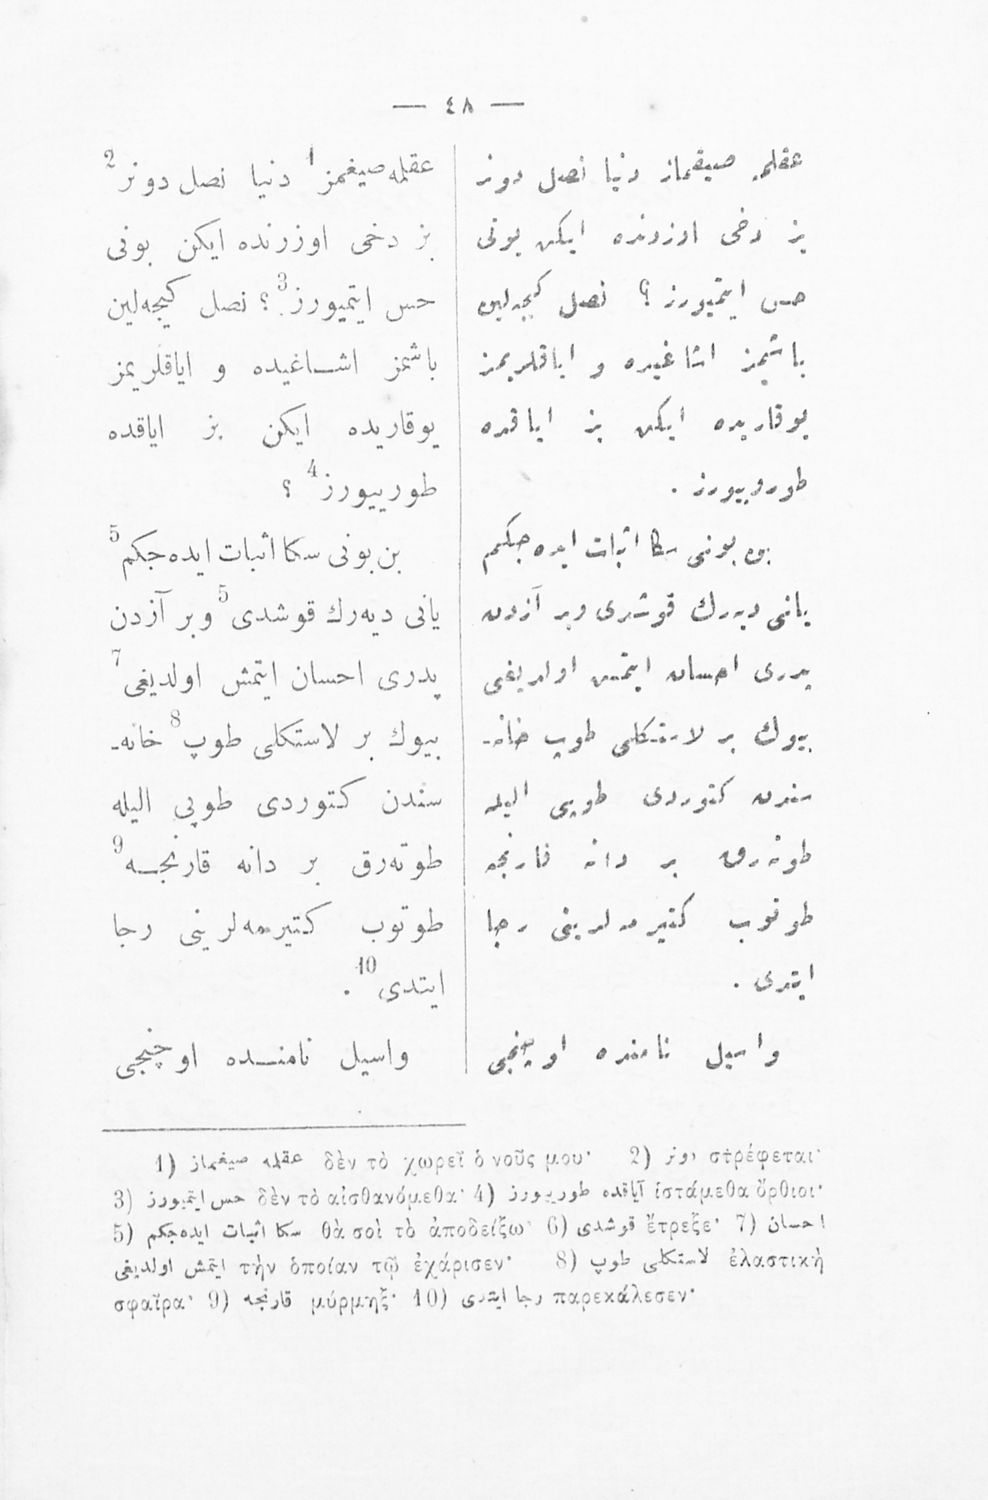 — ٤٨ —
عقلمه صيغماز دنيا نصل دونر
بز دخی اوزرنده ايكن بونی
حس ايتميورز ؟ نصل كيجه‌لين
باشمز اشاغيده و اياقلريمز
يوقاريده ايكن بز اياقده
طورويورز .
بن بونی سكا اثبات ايده جكم
يانی ديه‌رك قوشدی وبر آزدن
پدری احسان ايتمش اولديغی
بيوك بر لاستكلی طوپ خانه-
سندن كتوردی طوپی اليله
طوته‌رق بر دانه قارنجه
طوتوب كتيرمه‌لرينی رجا
ايتدی .
واسيل نامنده اوچنجی
عقلمه صيغمز1 دنيا نصل دونر2
بز دخی اوزرنده ايكن بونی
حس ايتميورز3 ؟ نصل كيجه‌لين
باشمز اشــاغيده و اياقلريمز
يوقاريده ايكن بز اياقده
طورييورز4 ؟
بن بونی سكا اثبات ايده‌جكم5
يانی ديه‌رك قوشدی5 وبر آزدن
پدری احسان ايتمش اولديغی7
بيوك بر لاستكلی طوپ8 خانه-
سندن كتوردی طوپی اليله
طوته‌رق بر دانه قارنجــه9
طوتوب كتيرمه‌لرينی رجا
ايتدی10 .
واسيل نامنــده اوچنجی
1) عقلمه صيغماز δὲν τὸ χωρεῖ ὁ νοῦς μου· 2) دونر στρέφεται·
3) حس ايتميورز δὲν τὸ αἰσθανόμεθα· 4) آياقده طورييورز ἱστάμεθα ὄρθιοι·
5) سكا اثبات ايده‌جكم θὰ σοὶ τὸ ἀποδείξω· 6) قوشدی ἔτρεξε· 7) احسان
ايتمش اولديغی τὴν ὁποίαν τῷ ἐχάρισεν· 8) لاستكلی طوپ ἐλαστικὴ
σφαῖρα· 9) قارنجه μύρμηξ· 10) رجا ايتدی παρεκάλεσεν·